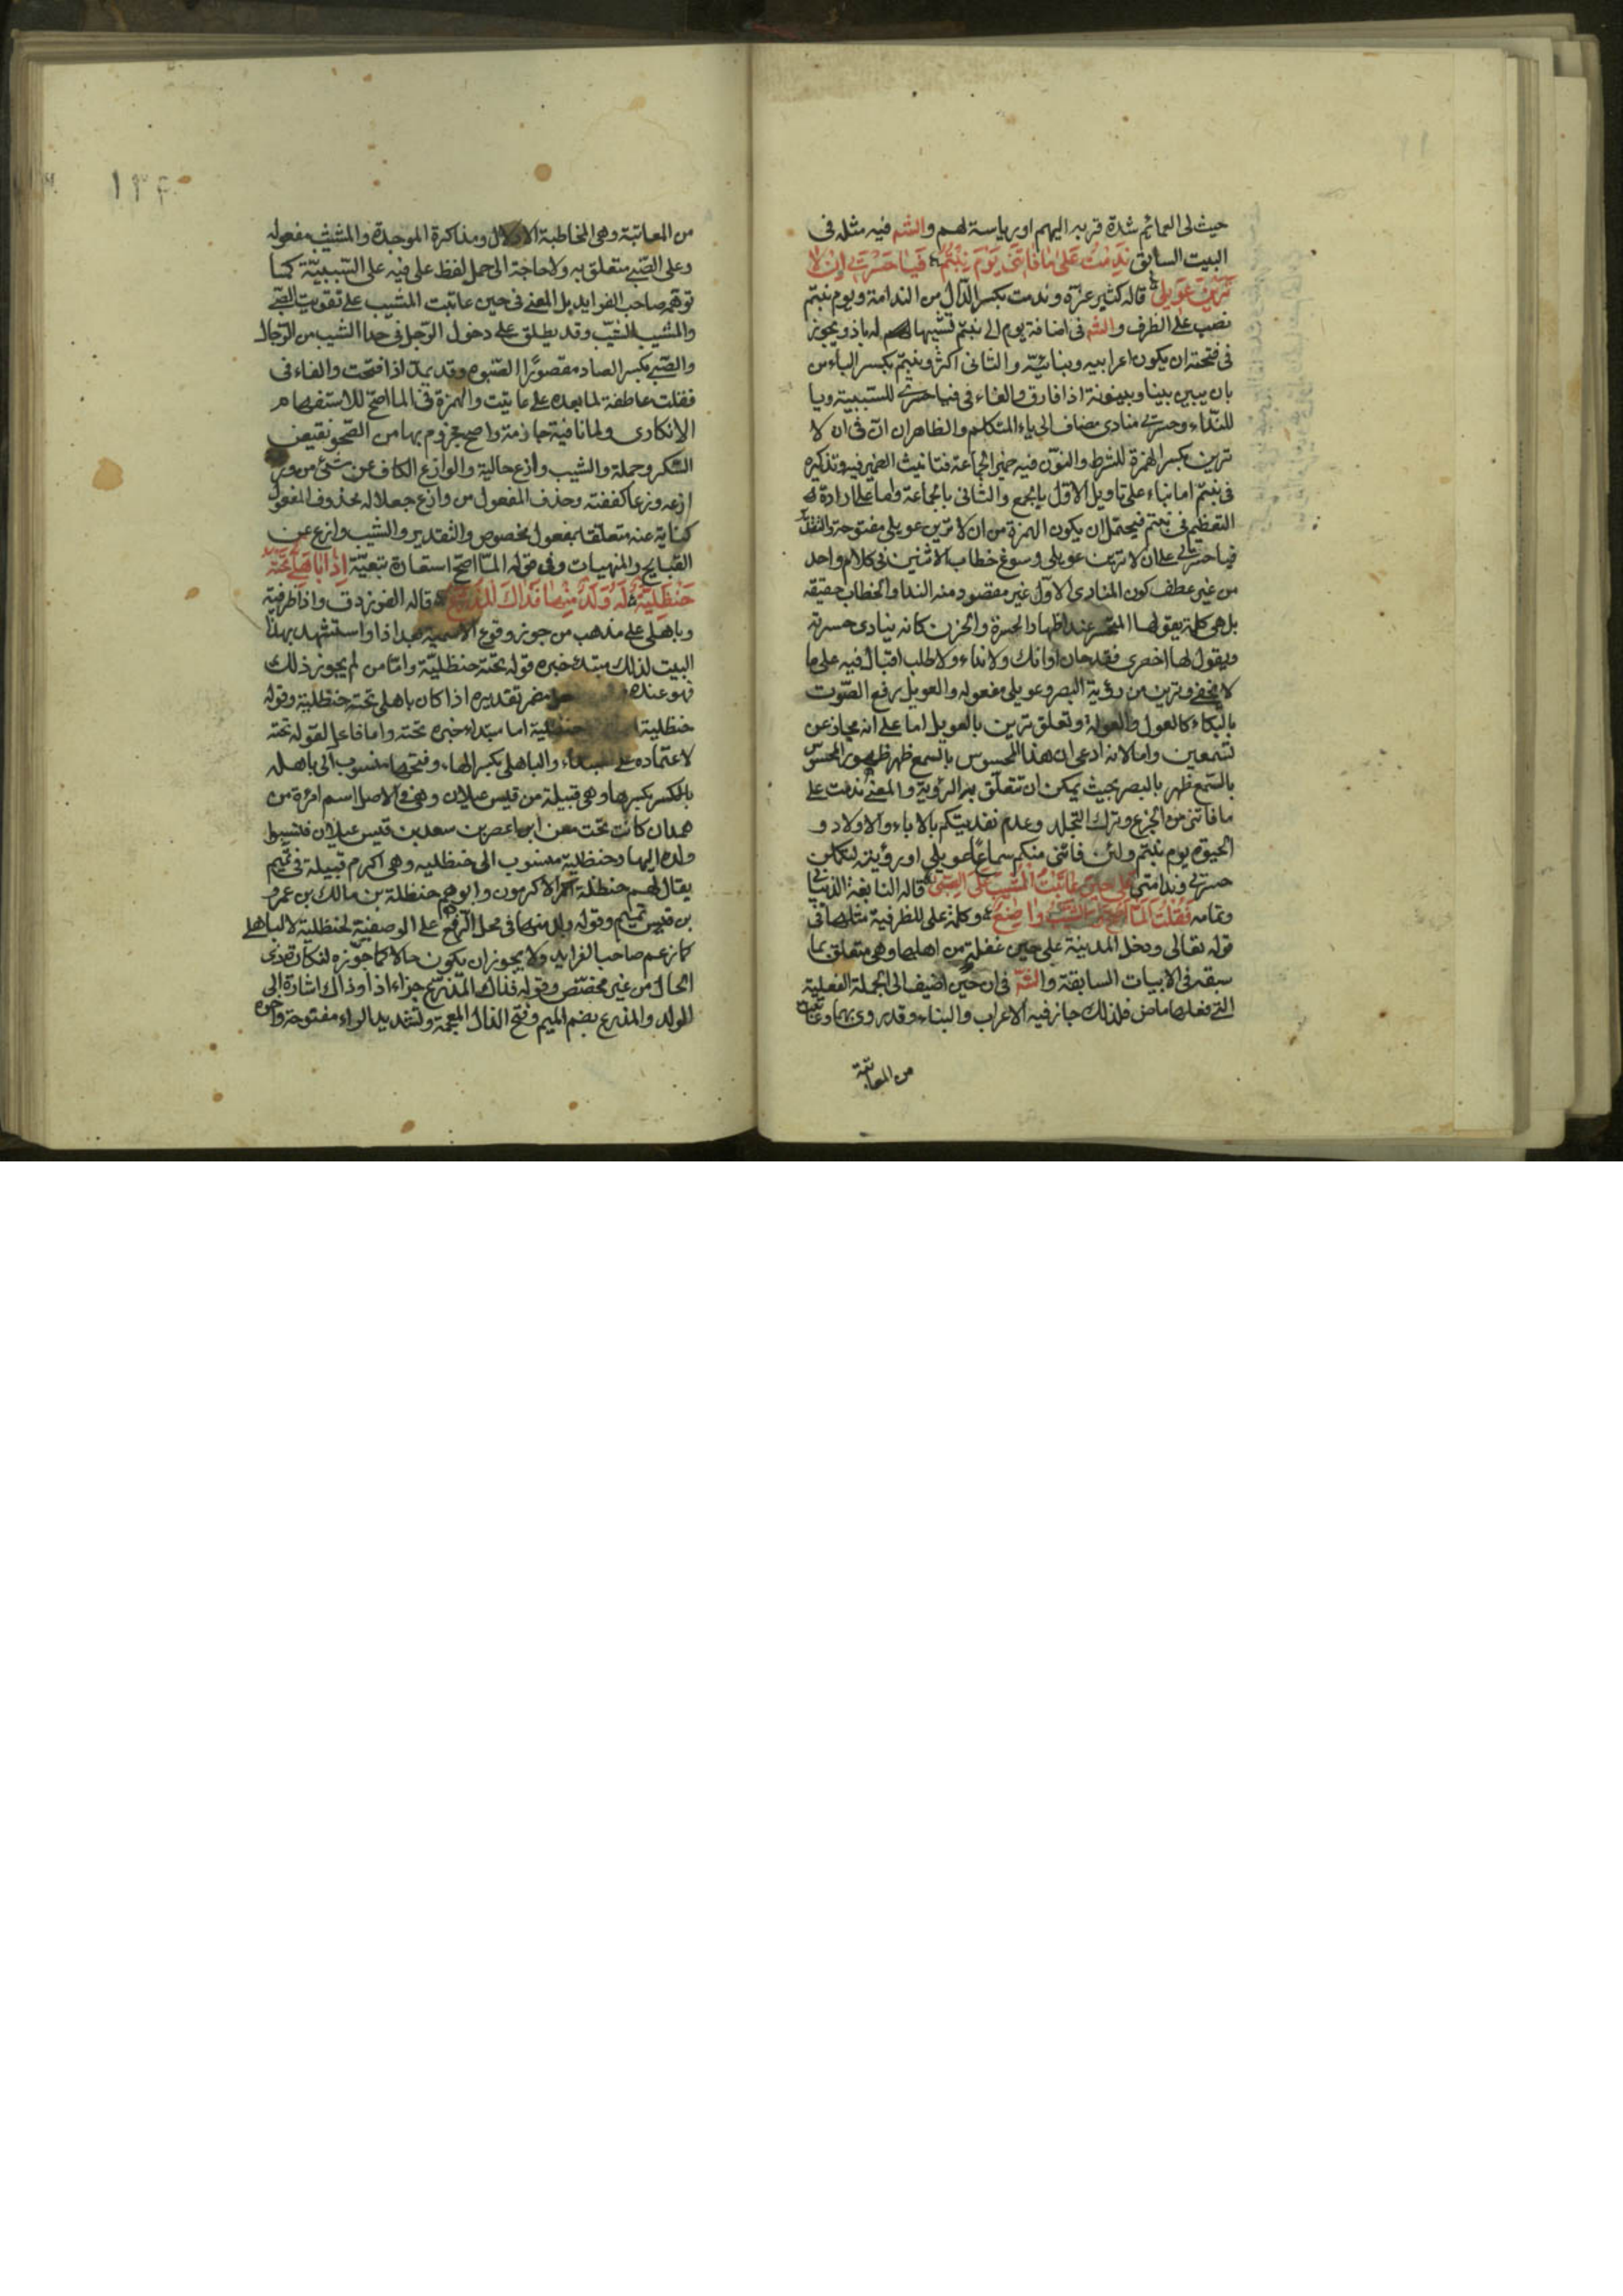 حيث لى العمائم شدة قربه اليهم او رياسة لهم والشم فيه مثله فى
البيت السابق نَدِمْتُ عَلىٰ مٰا فٰاتَنى يَوْمَ بِنْتُم فَيٰا حَسْرَتى اِنْ لا
تَرَيْنَ عَويلى قاله كثير عزة وندمت بكسر الدّال من الندامة ويوم بنتم
نصب على الظرف والشم فى اضافة يوم الى بنتم تشبيها له باذ ويجوز
فى فتحته ان يكون اعرابيه وبنائيّة والثانى اكثر وبنتم بكسر الباء من
بان يبين بينا وبينونة اذا فارق والفاء فى فيا حسرتى للسّببية ويا
للنّداء وحسرتى منادى مضاف الى ياء المتكلم والظاهر ان انّ فى ان لا
ترين بكسر الهمزة للشرط والنون فيه ضمير الجماعة فتانيث الضمير فيه وتذكيره
فى بنتم اما بناء على تاويل الاوّل بالجمع والثانى بالجماعة واما على ارادة
التعظيم فى بنتم فيحتمل ان يكون الهمزة من ان لا ترين عويلى مفتوحة والتقدير
فيا حسرتى على ان لا ترين عويلى وسوغ خطاب الاثنين فى كلام واحد
من غير عطف كون المنادى الاول غير مقصود منه الندا والخطاب حقيقه
بل هى كلمة يقولها المتحسر عند اظهار الحسرة والحزن كانه ينادى حسرته
ويقول لها احضرى فقد حان اوانك ولا نداء ولا طلب اقبال فيه على ما
لا يخفى وترين من رؤية البصر وعويلى مفعوله والعويل رفع الصّوت
بالبكاء كالعول والعولة وتعلق ترين بالعويل اما على انه مجاز عن
تسمعين واما لانه ادعى ان هذا المحسوس بالسمع ظهر ظهور المحسوس
بالسّمع ظهر بالبصر بحيث يمكن ان تتعلّق به الرؤية والمعنى ندمت على
ما فاتنى من الجزع وترك التجلد وعدم تفديتكم بالاباء والاولاد و
الحيوة يوم بنتم ولئن فاتنى منكم سماع عويلى او رؤيته ليتكاملن
حسرتى وندامتى عَلىٰ حينَ عٰاتَبْتُ الْمَشيبَ عَلَى الصِّبىٰ قاله النابغة الذبيانى
وتمامه فَقُلْتُ اَلَمّٰا اَصْحُ وَالشَّيْبُ وٰازِعٌ وكلمة على للظرفية مثلها فى
قوله تعالى ودخل المدينة على حين غفلة من اهلها وهى متعلق بما
سبقه فى الابيات السابقة والشّم فى ان حين اضيف الى الجملة الفعلية
التى فعلها ماض فلذلك جاز فيه الاعراب والبناء وقد روى بهما وعاتبت
من المعاتبة
١٣٤
من المعاتبة وهى المخاطبة الادلال ومذاكرة الموجدة والمشيب مفعوله
وعلى الصّبى متعلق به ولا حاجة الى حمل لفظ على فيه على السّببيّة كما
توهّم صاحب الفرايد بل المعنى فى حين عاتبت المشيب على تفويت الصّبى
والمشيب الشيّب وقد يطلق على دخول الرّجل فى حد الشيب من الرّجال
والصّبى بكسر الصاد مقصورًا الصّبوه وقد يمدّ اذا فتحت والفاء فى
فقلت عاطفة لما بعده على عاتبت والهمزة فى الما اصح للاستفهام
الانكارى ولما نافية جازمة واصح مجزوم بها من الصّحو نقيض
السّكر وجملة والشيب وازع حالية والوازع الكاف عن شئ من وزع
ازعه وزعا كففته وحذف المفعول من وازع جعلا له محذوف المفعول
كناية عنه متعلقا بمفعول مخصوص والتقدير والشيب وازع عن
القبايح والمنهيات وفى قوله المّا اصح استعارة تبعيّة اِذا بٰاهِلىٌّ تَحْتَهُ
حَنْظَلِيَّةٌ لَهُ وَلَدٌ مِنْهٰا فَذٰاكَ الْمُذَرَّعُ قاله الفرزدق واذا ظرفية
وباهلى على مذهب من جوز وقوع الاسمية بعد اذا واستشهد بهذا
البيت لذلك مبتدء خبره قوله تحته حنظليّة وامّا من لم يجوز ذلك
فهو عنده مضمر تقديره اذا كان باهلى تحته حنظلية وقوله
حنظلية اما مبتداء خبره تحته واما فاعل لقوله تحته
لاعتماده على والباهلى بكسر الهاء وفتحها منسوب الى باهله
بالكسر بكسرها وهى قبيلة من قيس عيلان وهى فى الاصل اسم امرءة من
همدان كانت تحت معن ابن اعصر بن سعد بن قيس عيلان فنسبوا
ولده اليها وحنظلية منسوب الى حنظليه وهى اكرم قبيلة فى تميم
يقال لهم حنظلة الاكرمون وابوهم حنظلة بن مالك بن عمرو
بن قيس تميم وقوله ولد منها فى محل الرّفع على الوصفيّة لحنظلية لا لباهلى
كما زعم صاحب الفرايد ولا يجوز ان يكون حالا كما جوّزه لنكارة ذى
الحال من غير مخصّص وقوله فذاك المذرّع جزاء اذا وذاك اشارة الى
الولد والمذرع بضم الميم وفتح الذال المعجمة وتشديد الراء مفتوحة